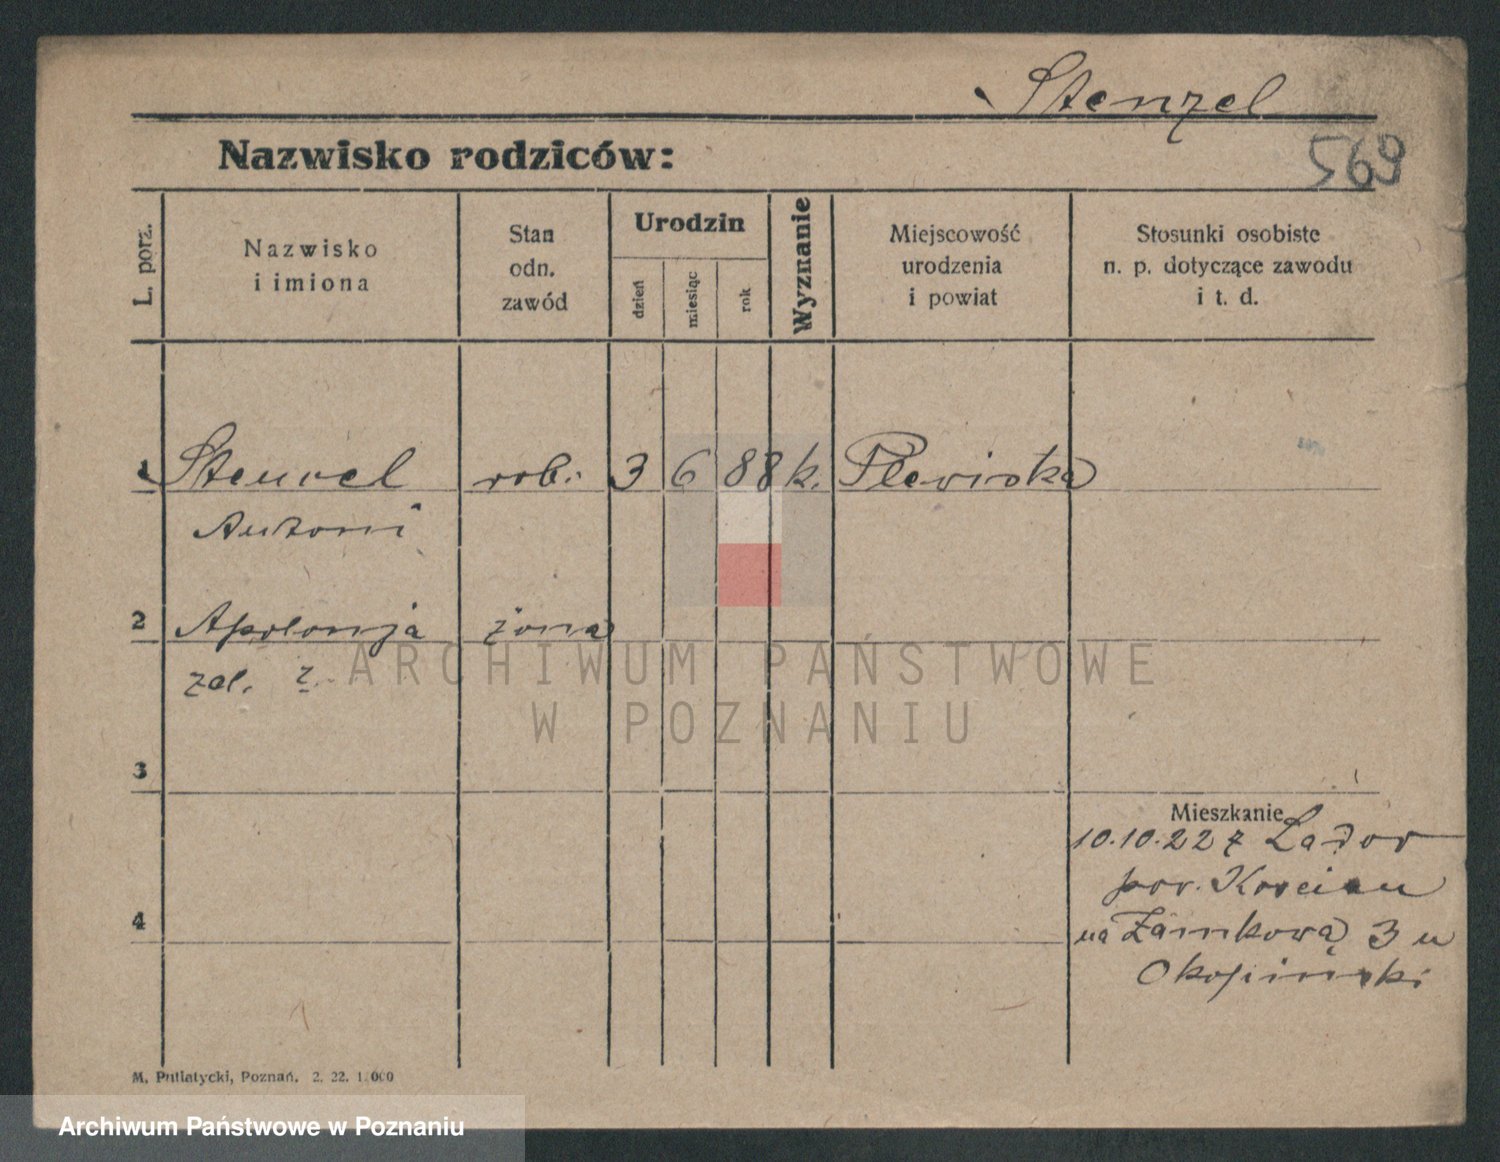 Stenzel
Nazwisko rodziców:
569
L. porz.
Nazwisko
i imiona
Stan
odn.
zawód
Urodzin
dzień
miesiąc
rok
Wyznanie
Miejscowość
urodzenia
i powiat
Stosunki osobiste
n. p. dotyczące zawodu
i t. d.
1 Stencel rob. 3 6 88 k. Plewiska
Antoni
2 Apolonja żona
zal. ż.
ARCHIWUM PAŃSTWOWE
W POZNANIU
3
Mieszkanie
10.10.22 z
pow. Kościan
4
na Zamkową 3 u
M. Putiatycki, Poznań. 2. 22. 1.000
Archiwum Państwowe w Poznaniu